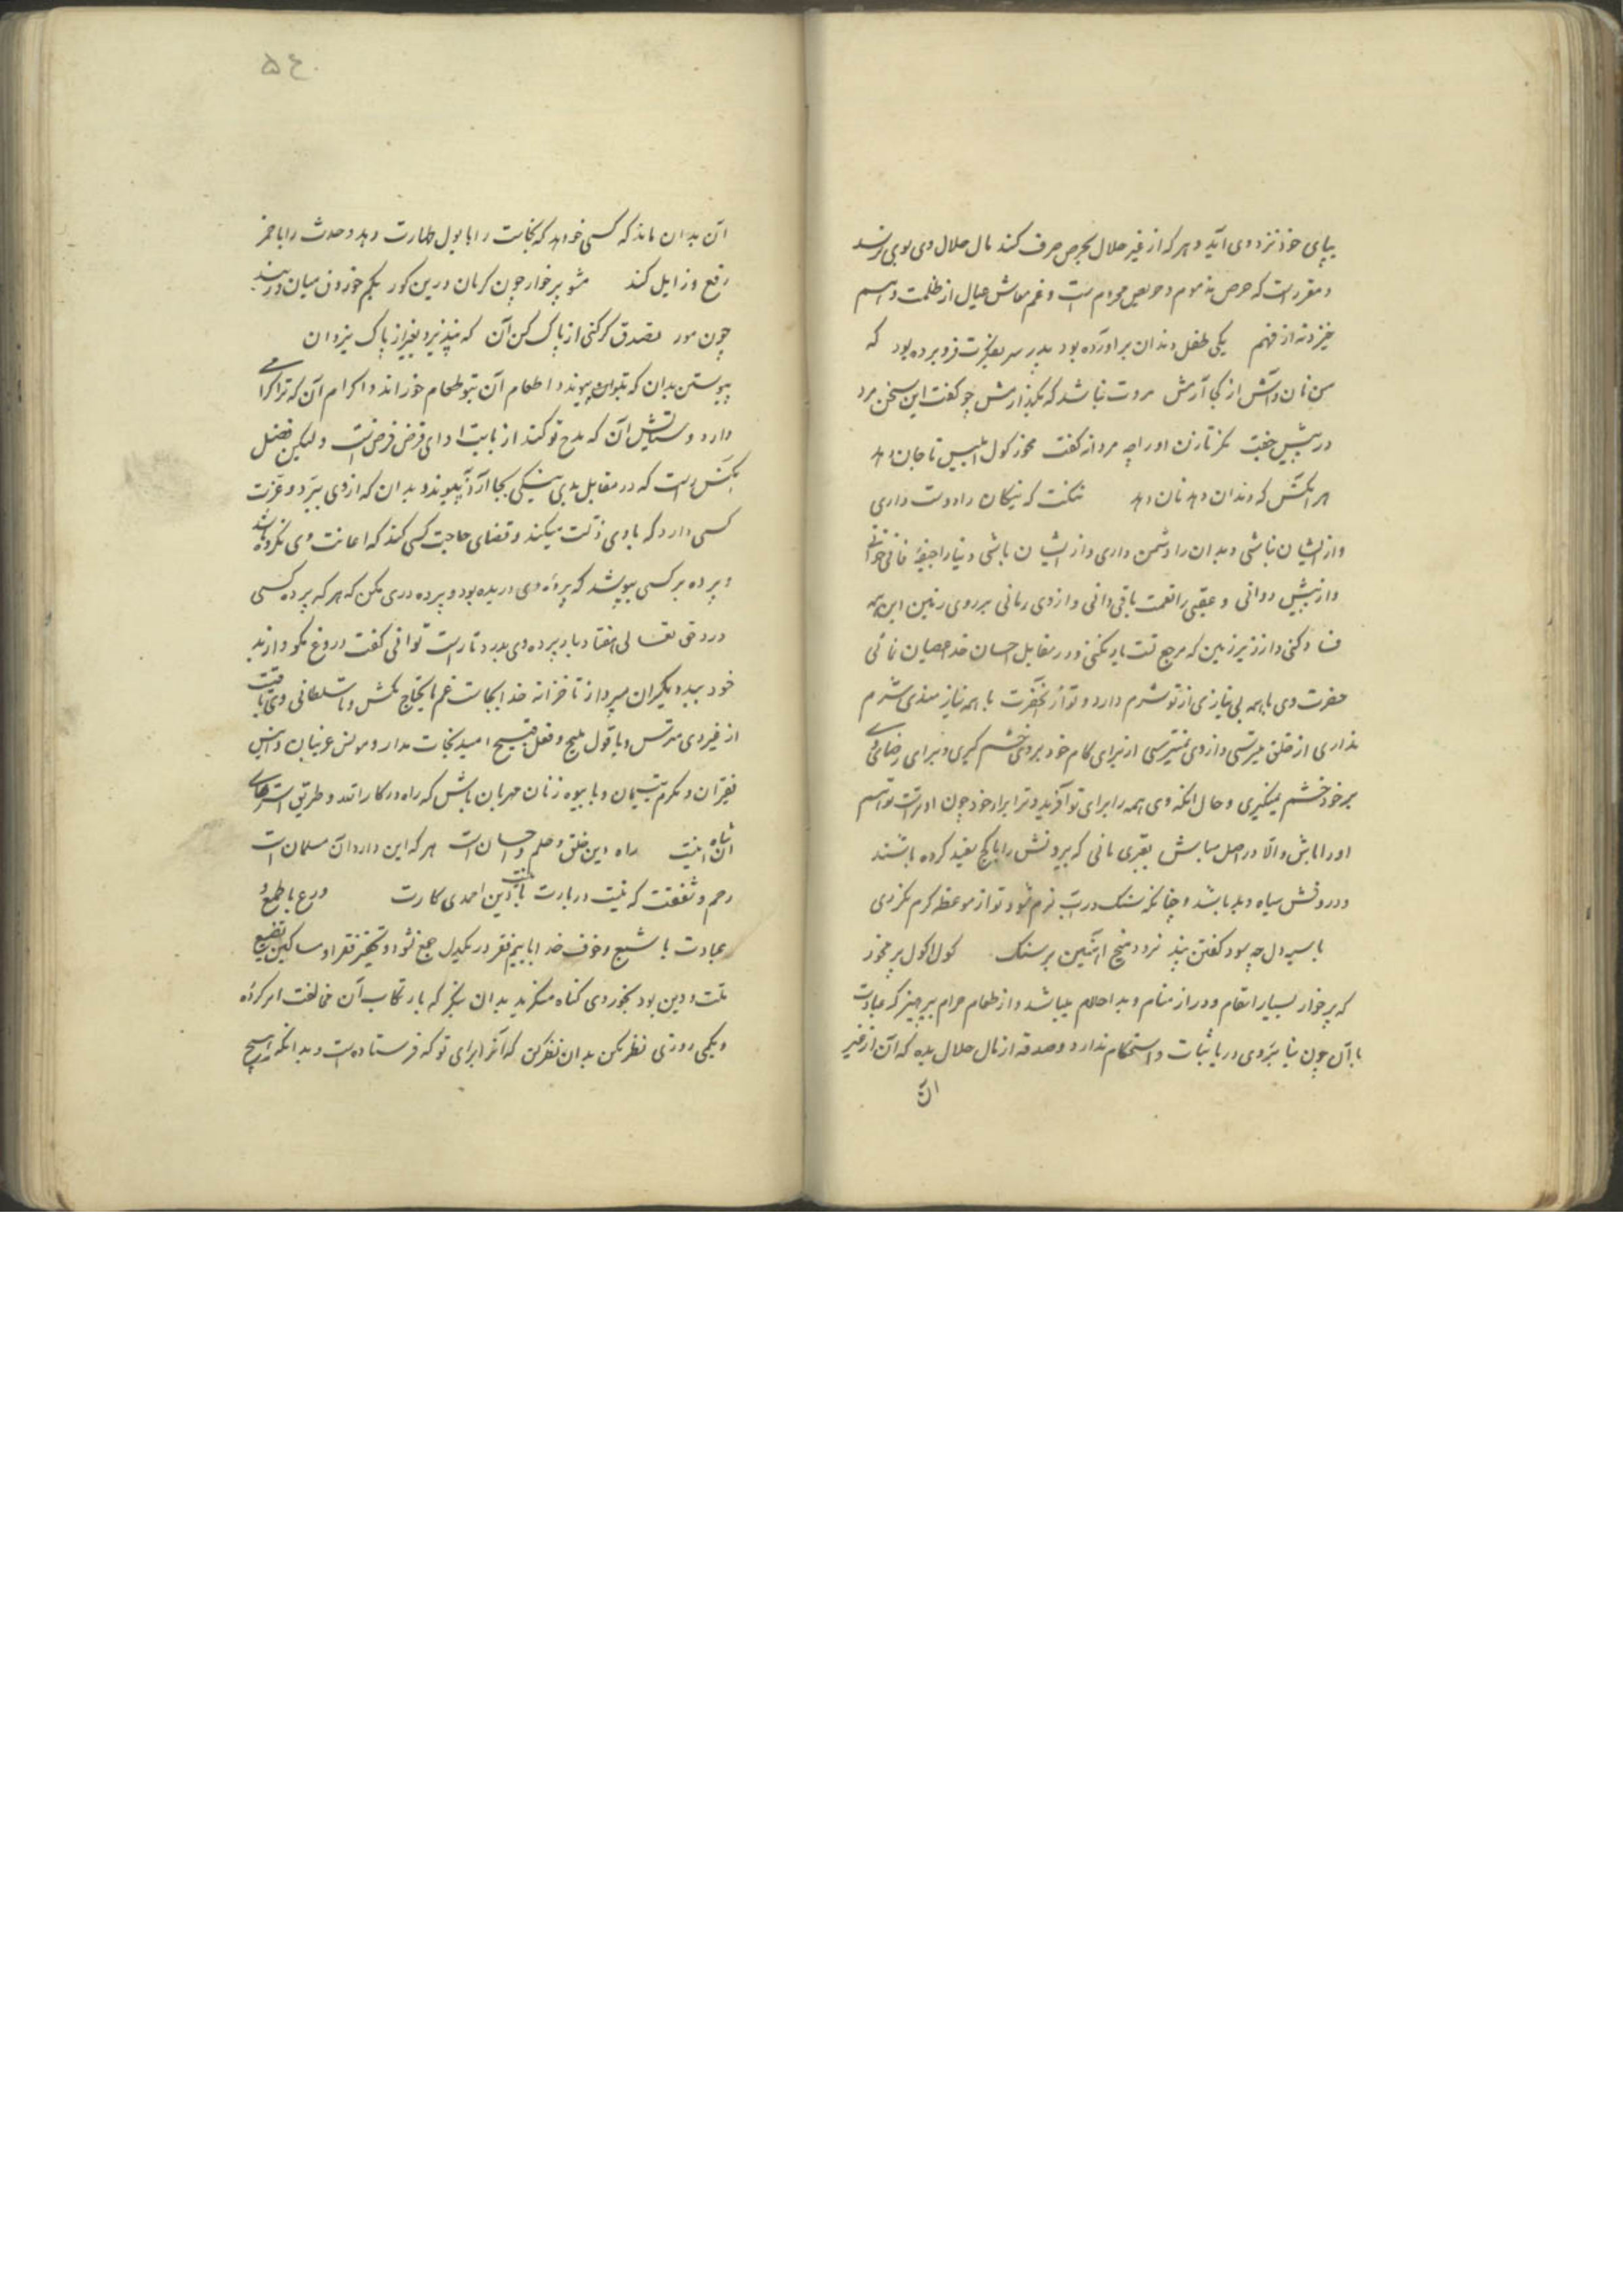 بپای خود نزد وی آید و هر که از غیر حلال بحرص صرف کند مال حلال وی بوی نرسد
و مقررست که حرص مذموم و حریص محرومست و غم معاش عیال از ظلمت وهم
خیزد نه از فهم یکی طفل دندان برآورده بود پدر سر بفکرت فرو برده بود که
من نان و آتش از کجا آرمش مروت نباشد که بگذارمش چو گفت این سخن مرد
در پیش جفت نگر تا زن او را چه مردانه گفت مخور گول ابلیس تا جان دهد
هر آنکس که دندان دهد نان دهد نیکان را دوست داری
و از ایشان نباشی و بدان را دشمن داری و از ایشان باشی دنیا را جیفهٔ فانی خوانی
و از پیش دوانی و عقبی را نعمت باقی دانی و از وی رمانی بر روی زمین این همه
فساد کنی و از زیر زمین که مرجع تست یاد نکنی و در مقابل احسان خدا عصیان نمائی
حضرت وی با همه بی نیازی از تو شرم دارد و تو از آنحضرت با همه نیازمندی شرم
نداری از خلق میترسی و از وی نمیترسی از برای کام خود بر وی خشم گیری و برای رضای وی
بر خود خشم نمیگیری و حال آنکه وی همه را برای تو آفرید و ترا برای خود چون او تراست تو هم
او را باش و الا در اصل مباش بقبری مانی که بیرونش را با گچ سفید کرده باشند
و درونش سیاه و پلید باشد و چنانکه سنگ در آب نرم نشود تو از موعظه گرم نگردی
با سیه دل چه سود گفتن پند نرود میخ آهنین بر سنگ پر مخور
که پرخوار بسیار اسقام و دراز منام و بد احلام میباشد و از طعام حرام بپرهیز که عبادت
با آن چون بنا بر روی دریا ثبات و استحکام ندارد و صدقه از مال حلال بده که آن از غیر
آن
۵۴
آن بدان ماند که کسی خواهد که نجاست را با بول طهارت دهد و حدث را با خمر
رفع و زایل کند مشو پرخوار چون کرمان درین گور بکم خوردن میان دربند
چون مور تصدق گر کنی از پاک کن آن که نپذیرد بغیر از پاک یزدان
پیوستن بدان که بتو آن پیوند و اطعام آن بتو طعام خوراند و اکرام آن که ترا گرامی
دارد و ستایش آن که مدح تو کند از بابت ادای قرض فرضست ولیکن فضل
آنکس راست که در مقابل بدی نیکی بجا آرد پیوندد بدان که از وی ببرد و عزت
کسی دارد که با وی ذلت میکند و قضای حاجت کسی کند که اعانت وی نکرده باشد
و پرده بر کسی بپوشد که پردهٔ وی دریده بود و پرده دری مکن که هر که پردهٔ کسی
درد حق تعالی هفتاد بار پرده وی بدرد تا راست توانی گفت دروغ مگو و از بد
خود ببد دیگران مپرداز تا خزانه خدا بجاست غم مایحتاج مکش و تا سلطانی وی باقیست
از غیر وی مترس و با قول ملیح و فعل قبیح امید نجات مدار و مونس غریبان و انیس
فقیران و مکرم یتیمان و با بیوه زنان مهربان باش که راه درگاه الله و طریق
اینست راه دین خلق و حلم و احسانست هر که این دارد آن مسلمانست
رحم و شفقت که نیست در بارت بادین احمدی کارت ورع با طمع و
عبادت با شبع و خوف خدا با بیم فقر در یکدل جمع نشود و تحقیر فقرا و مساکین تضییع
ملت و دین بود بخوردی گناه منگرید بدان بنگر که بارتکاب آن مخالفت امر کردهٔ
و بکمی روزی نظر مکن بدان نظر کن که آنرا برای تو که فرستاده است و بدانکه هیچ